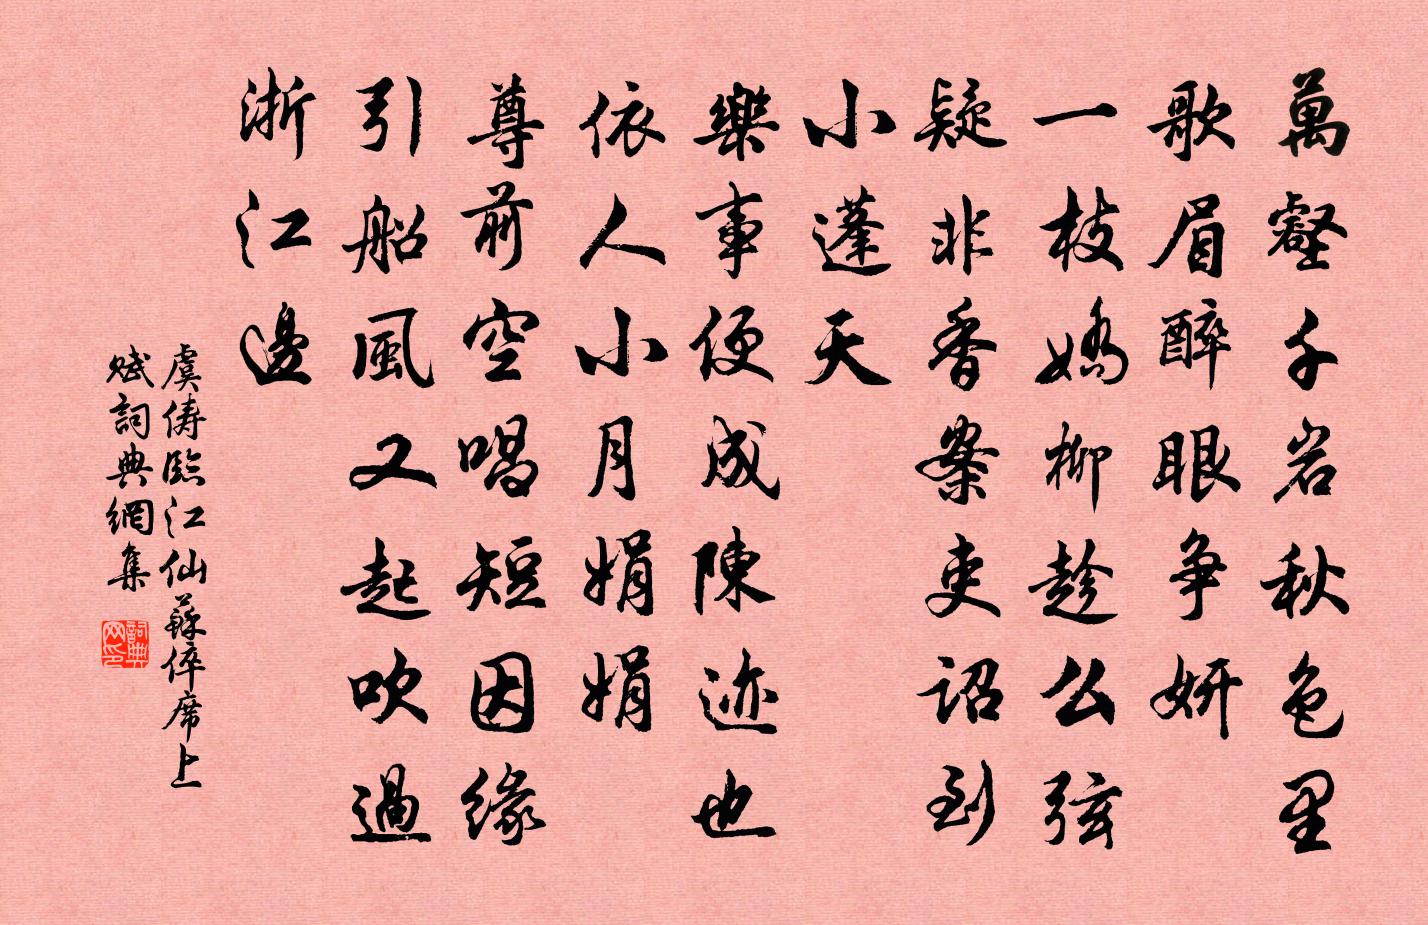 萬壑千岩秋色里
歌眉醉眼争妍
一枝嬌柳趁么弦
疑非香案吏詔到
小蓬天
樂事便成陳迹也
依人小月娟娟
尊前空唱短因缘
引船風又起吹過
浙江邊
虞儔臨江仙蘇倅席上
赋詞典網集
詞典网印